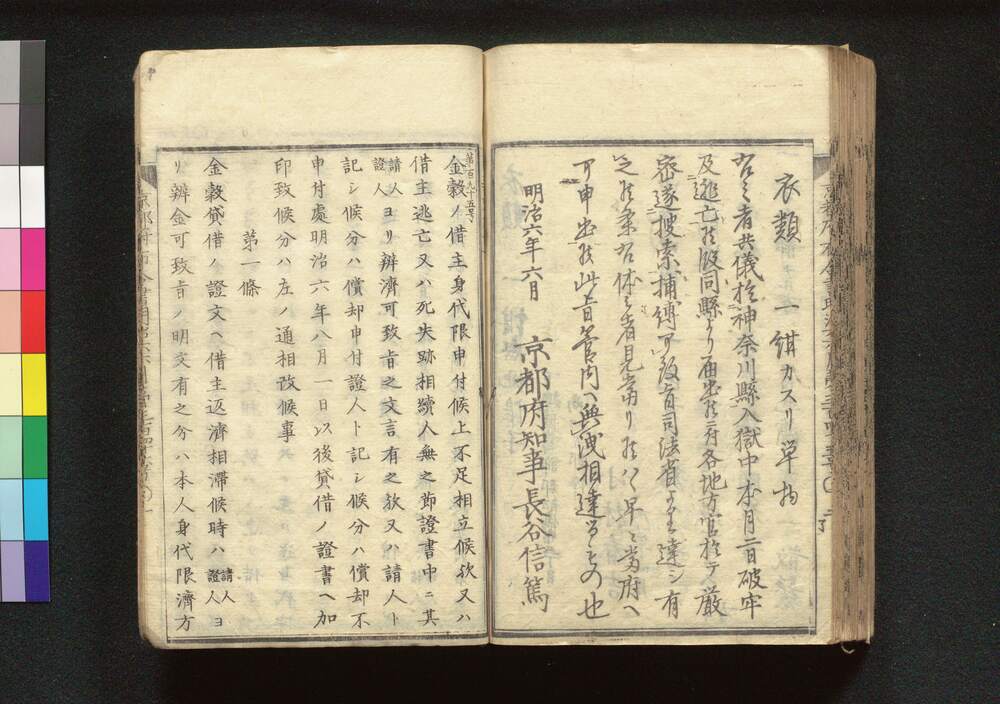 衣類 一 紺カスリ単物
右之者共儀於神奈川縣入獄中本月二日破牢
及逃亡候段同縣ゟ届出候ニ付各地方官於テ嚴
密遂搜索捕縛可致旨司法省ゟ達シ有
之候条右体之者見當リ候ハヽ早々當府ヘ
可申出候此旨管内ヘ無洩相達するもの也
明治六年六月
京都府知事長谷信篤
第百九十五号
金穀ノ借主身代限申付候上不足相立候欤又ハ
借主逃亡又ハ死失跡相續人無之節證書中ニ其
請人證人ヨリ辨濟可致旨之文言有之欤又請人ト
記シ候分ハ償却申付證人ト記シ候分ハ償却不
申付處明治六年八月一日以後貸借ノ證書ヘ加
印致候分ハ左ノ通相改候事
第一條
金穀貸借ノ證文ヘ借主返濟相滯候時ハ請人證人ヨ
リ辨金可致旨ノ明文有之分ハ本人身代限濟方